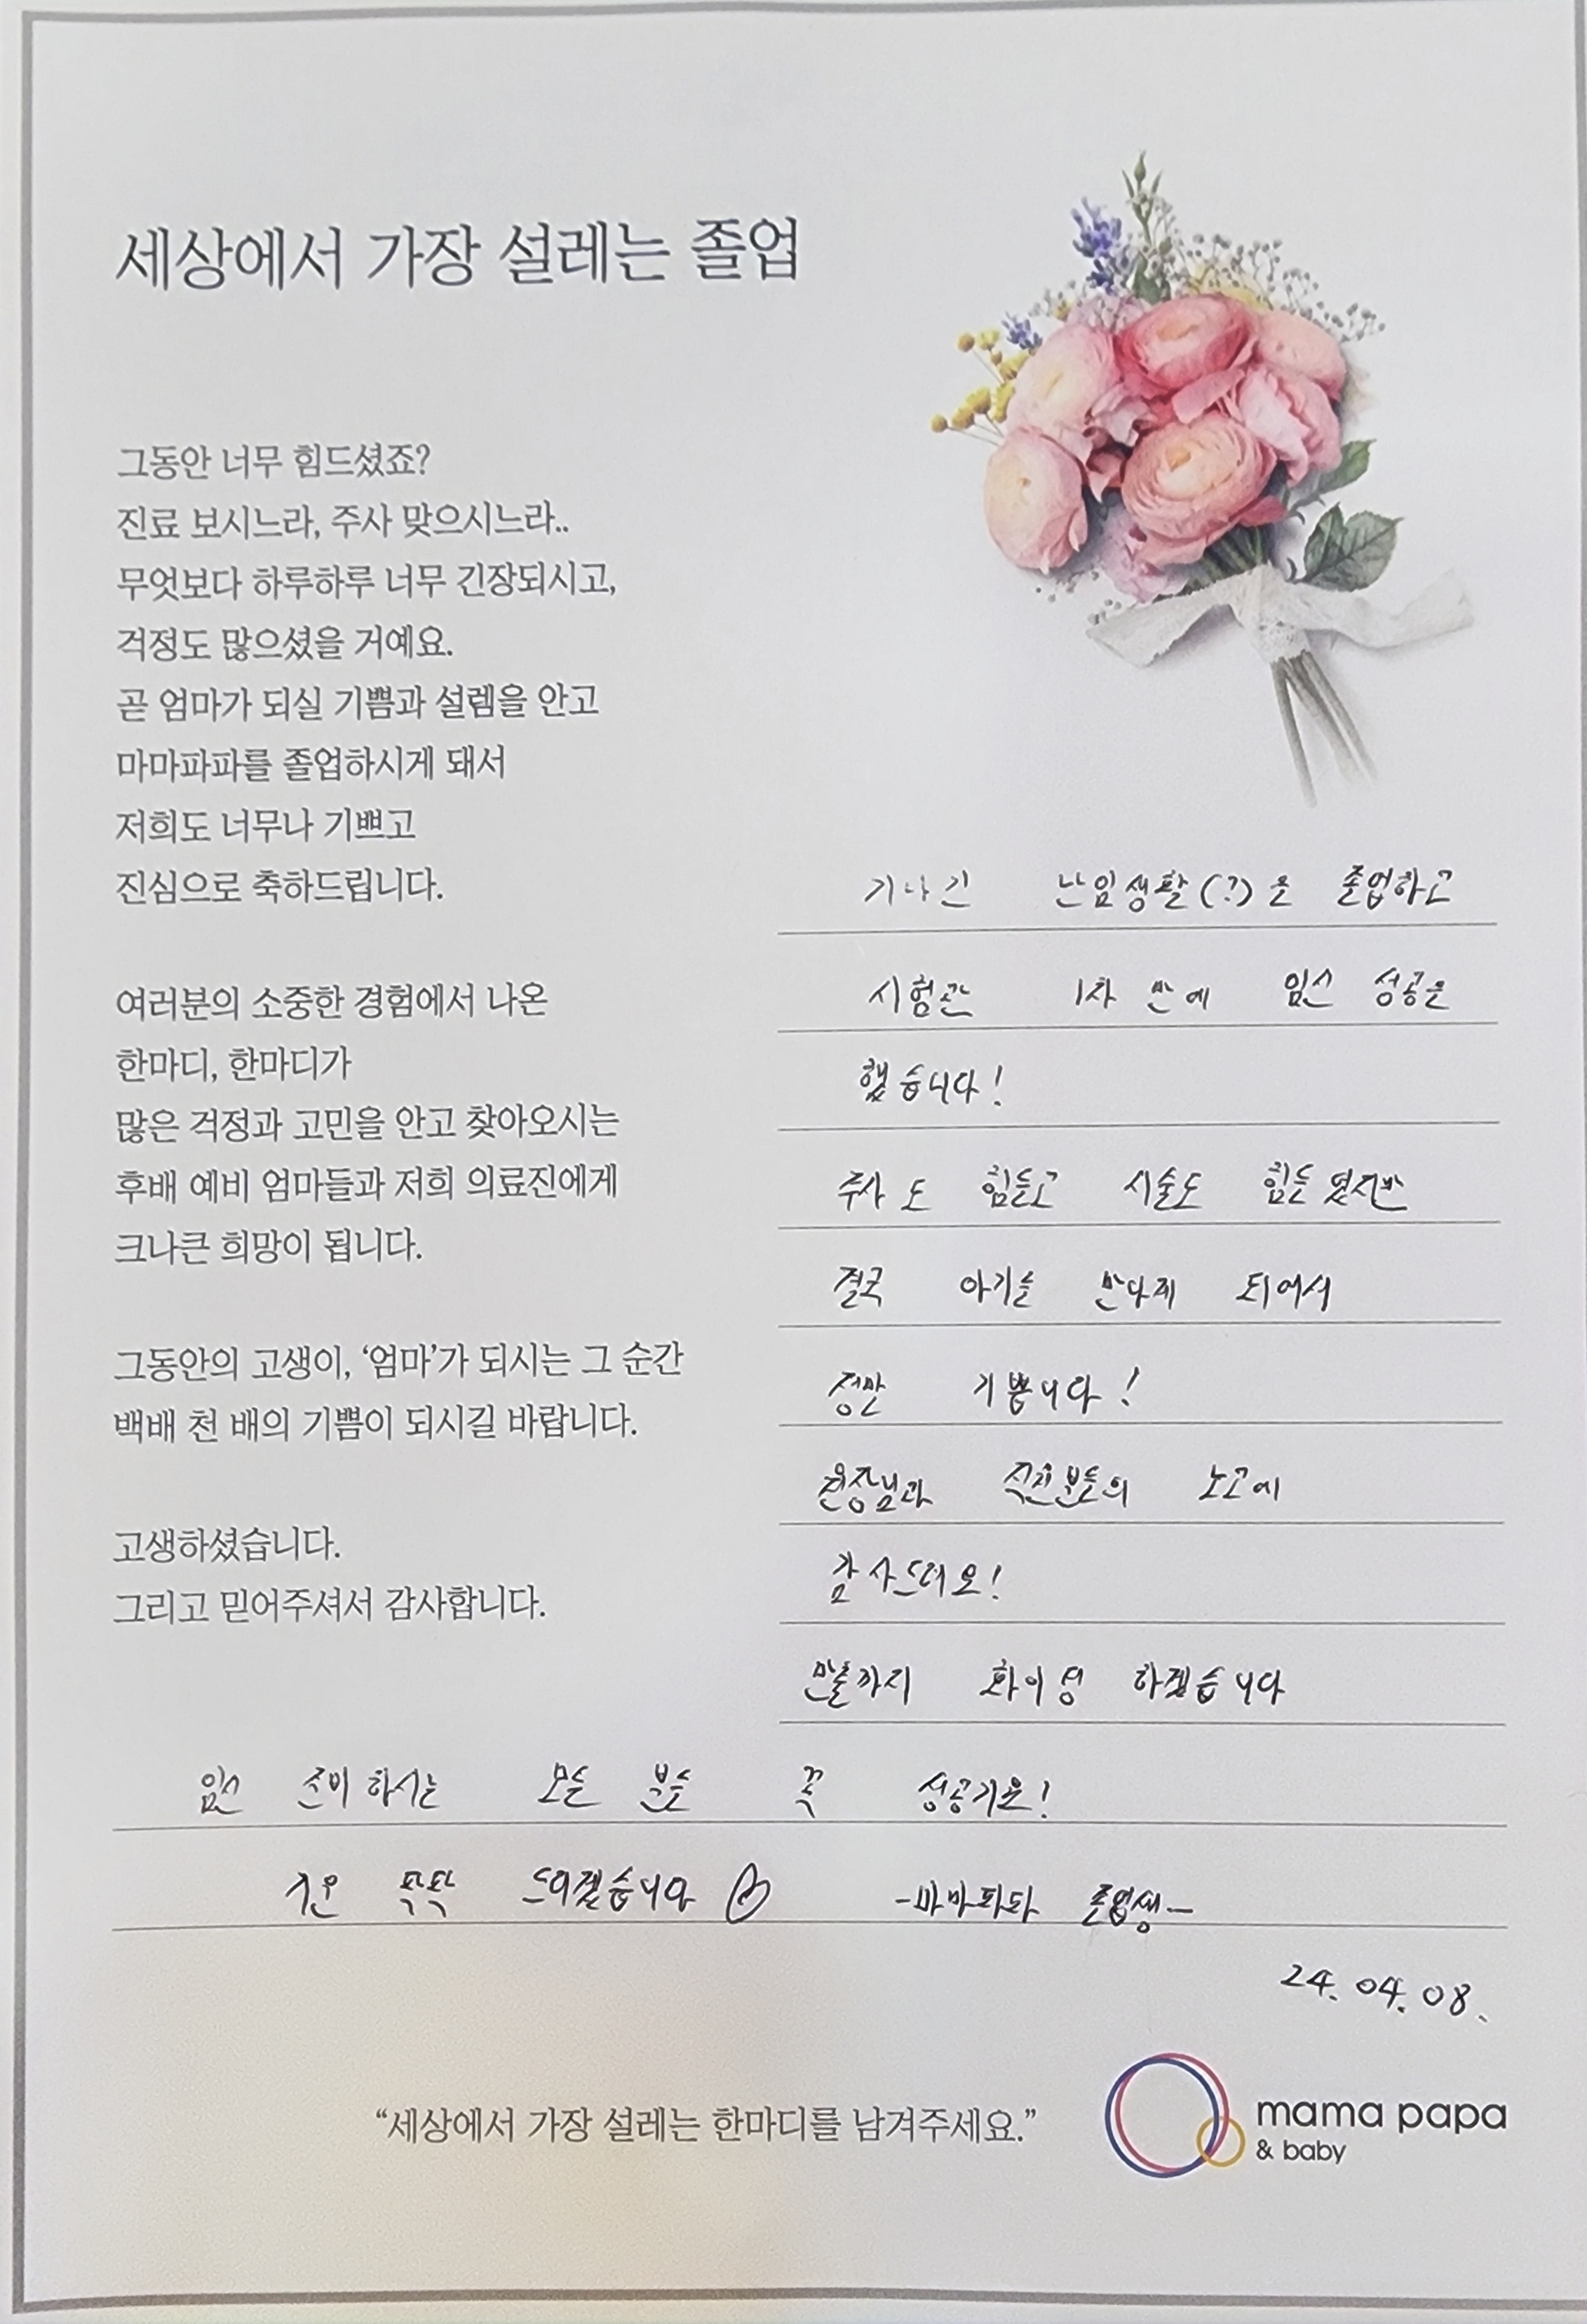 세상에서 가장 설레는 졸업
그동안 너무 힘드셨죠?
진료 보시느라, 주사 맞으시느라..
무엇보다 하루하루 너무 긴장되시고,
걱정도 많으셨을 거예요.
곧 엄마가 되실 기쁨과 설렘을 안고
마마파파를 졸업하시게 돼서
저희도 너무나 기쁘고
진심으로 축하드립니다.
여러분의 소중한 경험에서 나온
한마디, 한마디가
많은 걱정과 고민을 안고 찾아오시는
후배 예비 엄마들과 저희 의료진에게
크나큰 희망이 됩니다.
그동안의 고생이, ‘엄마’가 되시는 그 순간
백배 천 배의 기쁨이 되시길 바랍니다.
고생하셨습니다.
그리고 믿어주셔서 감사합니다.
기나긴 난임생활(?)을 졸업하고
시험관 1차 만에 임신 성공을
했습니다!
주사도 힘들고 시술도 힘들었지만
결국 아기를 만나게 되어서
정말 기쁩니다!
원장님과 직원분들의 노고에
감사드려요!
만출까지 화이팅 하겠습니다
임신 준비하시는 모든 분들 꼭 성공기운!
기운 팍팍 드리겠습니다
-마마파파 졸업생-
24. 04. 08.
“세상에서 가장 설레는 한마디를 남겨주세요.”
mama papa
& baby